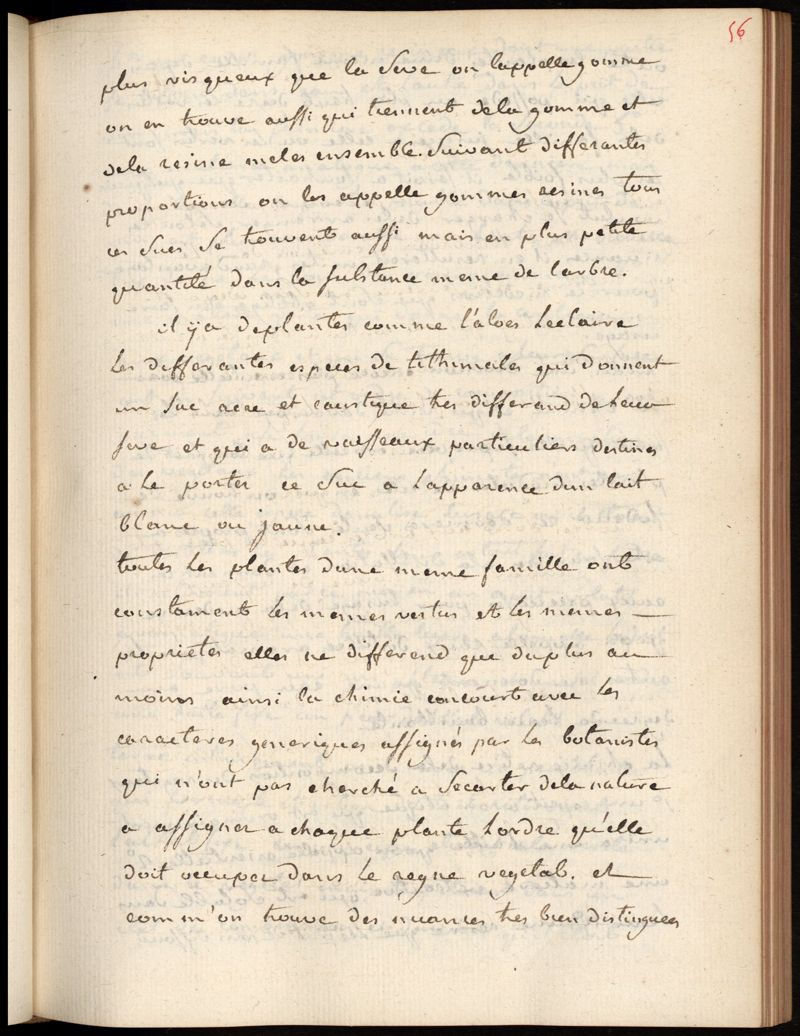 56
plus visqueux que la Seve on lappelle gomme
on en trouve aussi qui tiennent dela gomme et
dela resine meles ensemble. Suivant differantes
proportions on les appelle gommes resines tous
ces Sucs Se trouvent aussi mais en plus petite
quantité dans la substance meme de larbre.
il ÿ a deplantes comme l'aloes Leclaire
Les differantes especes de tithimales qui donnent
un Suc acre et caustique tres differand de Leur
seve et qui a de vaisseaux particuliers destines
a Le porter ce Suc a lapparence dun lait
blanc ou jaune.
toutes Les plantes dune meme famille ont
constament les memes vertus et les memes —
proprietes elles ne differend que duplus au
moins ainsi la chimie concourt avec les
caracteres generiques assignés par les botanistes
qui n'ont pas cherché a Secarter dela nature
a assigner a chaque plante Lordre qu'elle
doit occuper dans Le regne vegetab. et
comm'on trouve des nuances tres bien distinguees